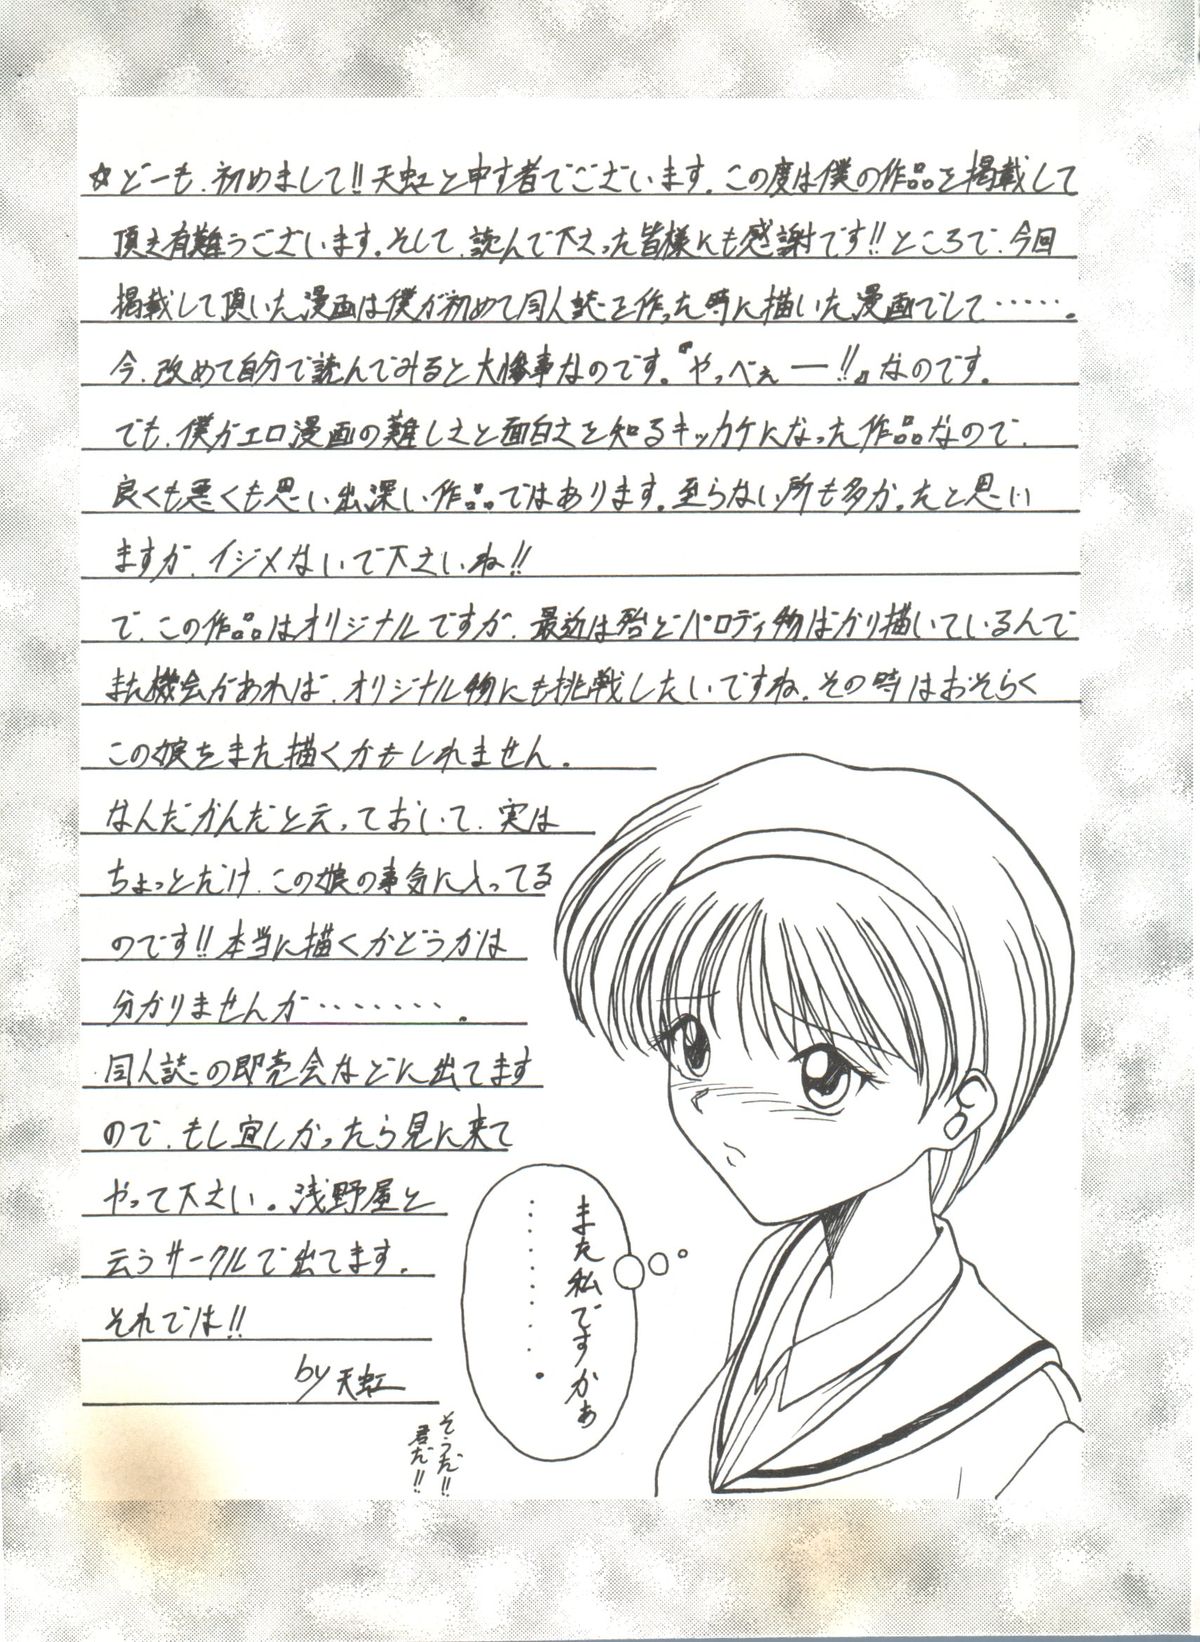 ☆どーも、初めまして!!天虹と申す者でございます。この度は僕の作品を掲載して
頂き有難うございます。そして、読んで下さった皆様にも感謝です!!ところで、今回
掲載して頂いた漫画は僕が初めて同人誌を作った時に描いた漫画でして‥‥‥。
今、改めて自分で読んでみると大惨事なのです。『やっべぇー!!』なのです。
でも、僕がエロ漫画の難しさと面白さを知るキッカケになった作品なので、
良くも悪くも思い出深い作品ではあります。至らない所も多かったと思い
ますが、イジメないで下さいね!!
で、この作品はオリジナルですが、最近は殆どパロディ物ばかり描いているんで
また機会があれば、オリジナル物にも挑戦したいですね。その時はおそらく
この娘をまた描くかもしれません。
なんだかんだと云っておいて、実は
ちょっとだけ、この娘の事気に入ってる
のです!!本当に描くかどうかは
分かりませんが‥‥‥‥。
同人誌の即売会などに出てます
ので、もし宜しかったら見に来て
やって下さい。浅野屋と
云うサークルで出てます。
それでは!!
by 天虹
また私ですかぁ
‥‥‥‥‥。
そうだ!!
君だ!!